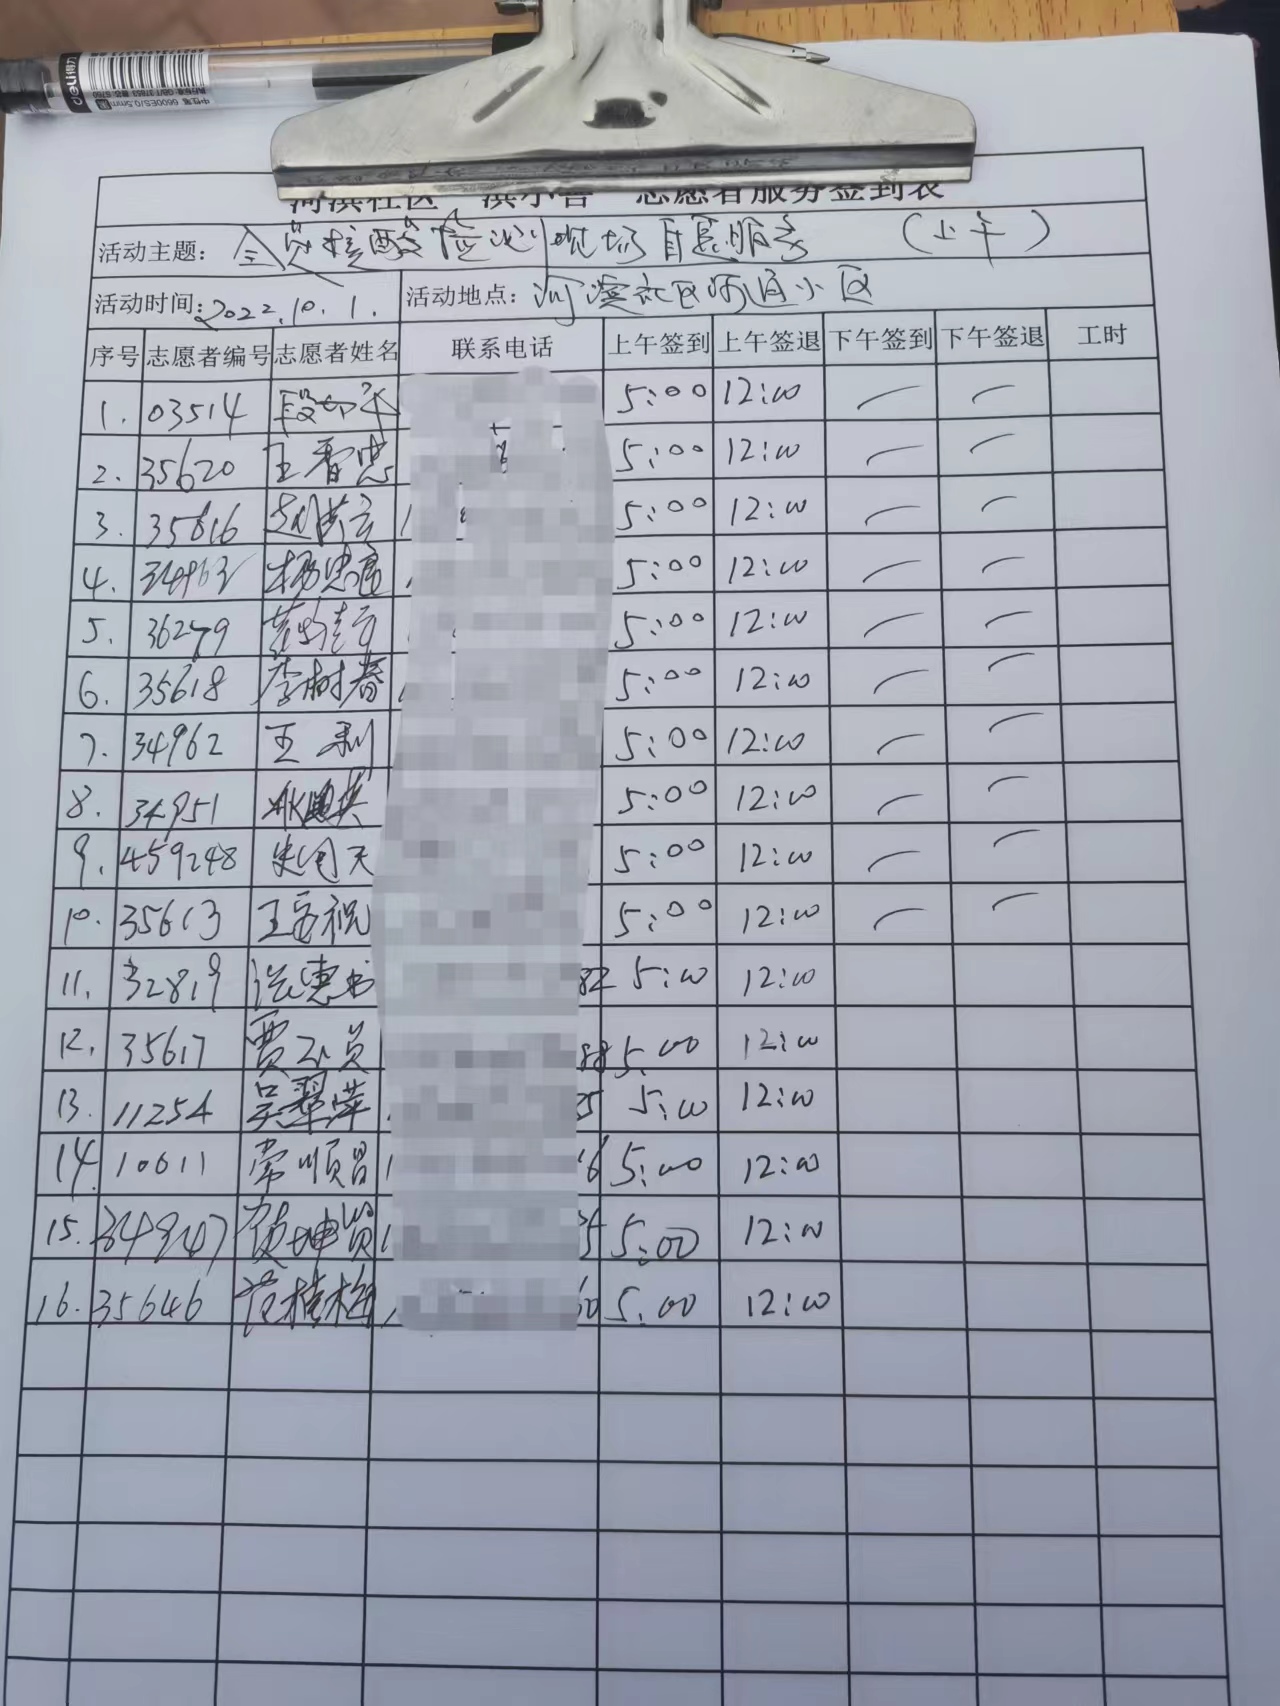 deli得力
中性笔 6600ES/0.5mm
河滨社区“滨小善”志愿者服务签到表
活动主题: 全员核酸检测现场自愿服务 (上午)
活动时间: 2022.10.1. 活动地点: 河滨社区河通小区
序号 志愿者编号 志愿者姓名 联系电话 上午签到 上午签退 下午签到 下午签退 工时
1. 03514 5:00 12:00 — —
2. 35620 王晋忠 5:00 12:00 — —
3. 35616 5:00 12:00 — —
4. 杨忠 5:00 12:00 — —
5. 36279 5:00 12:00 — —
6. 35618 李树春 5:00 12:00 — —
7. 34962 王 5:00 12:00 — —
8. 34951 5:00 12:00 — —
9. 459248 5:00 12:00 — —
10. 35613 王 祝 5:00 12:00 — —
11. 32819 惠书 82 5:00 12:00
12. 35617 贾 员 88 5:00 12:00
13. 11254 吴翠萍 25 5:00 12:00
14. 10611 常顺昌 16 5:00 12:00
15. 34947 贺坤贤 5:00 12:00
16. 35646 范桂梅 60 5:00 12:00